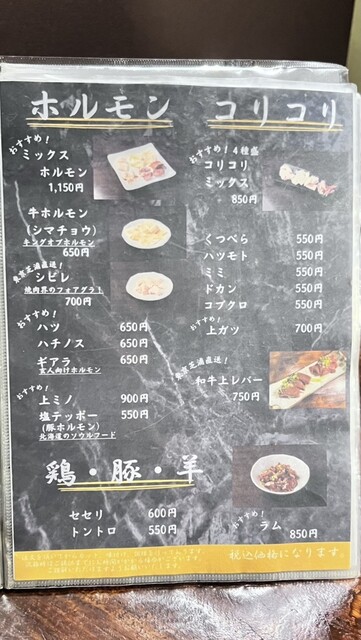 ホルモン
おすすめ!
ミックス
ホルモン
1,150円
牛ホルモン
(シマチョウ)
キングオブホルモン
650円
東京芝浦直送!
シビレ
焼肉界のフォアグラ!
700円
おすすめ!
ハツ 650円
ハチノス 650円
ギアラ 650円
玄人向けホルモン
おすすめ!
上ミノ 900円
塩テッポー 550円
(豚ホルモン)
北海道のソウルフード
コリコリ
おすすめ!4種盛
コリコリ
ミックス
850円
くつべら 550円
ハツモト 550円
ミミ 550円
ドカン 550円
コブクロ 550円
おすすめ!
上ガツ 700円
東京芝浦直送!
和牛上レバー
750円
鶏・豚・羊
セセリ 600円
トントロ 550円
おすすめ!
ラム
850円
税込価格になります。